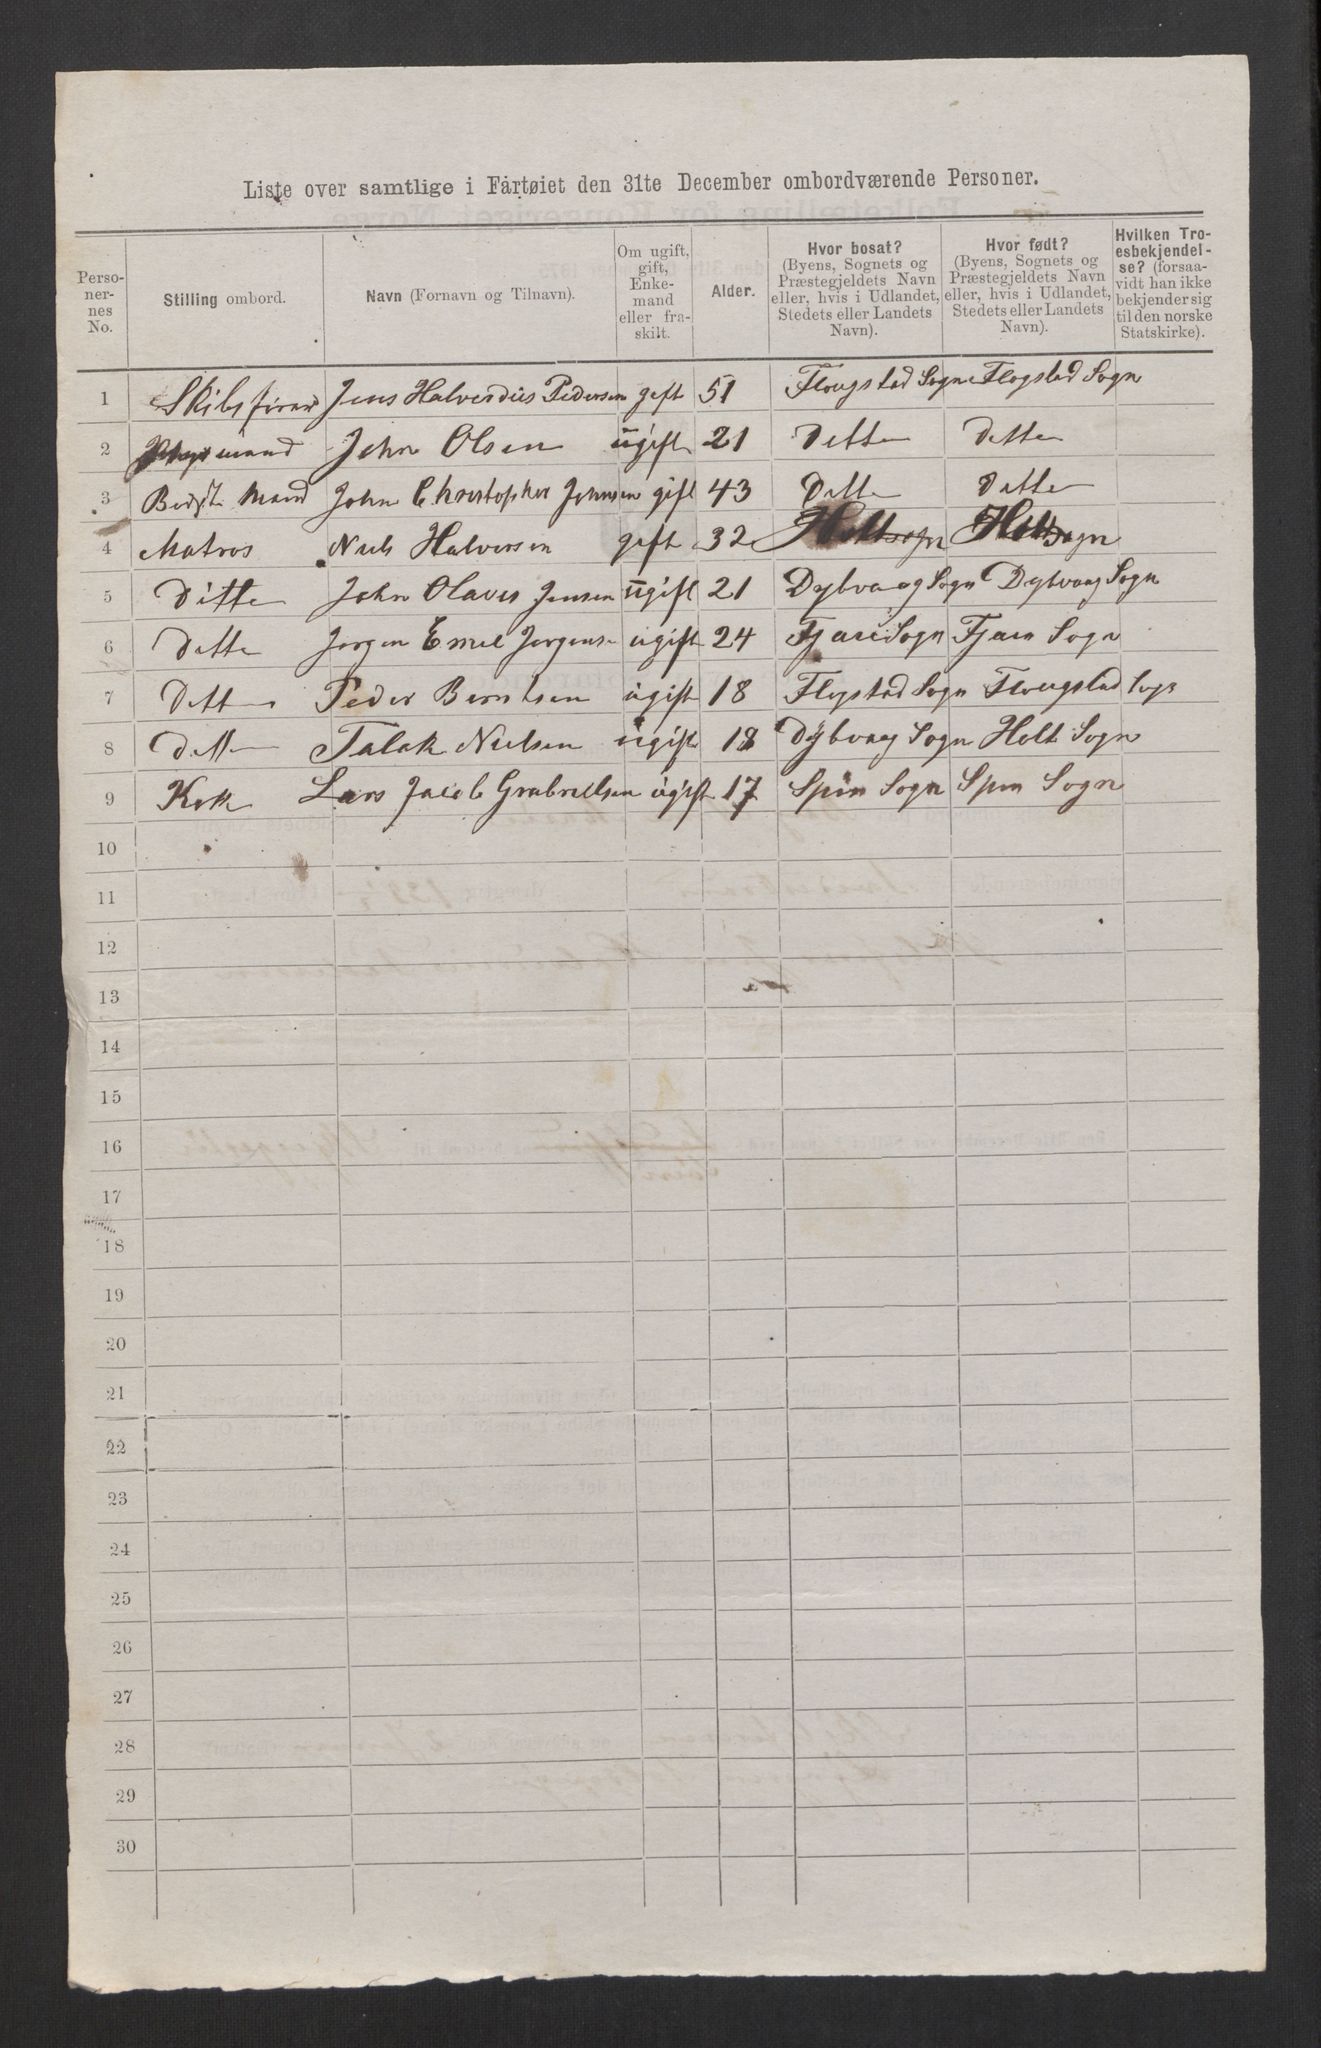 Liste over samtlige i Fartøiet den 31te December ombordværende Personer.
Perso-
ner-
nes
No.
Stilling ombord.
Navn (Fornavn og Tilnavn).
Om ugift,
gift,
Enke-
mand
eller fra-
skilt.
Alder.
Hvor bosat?
(Byens, Sognets og
Præstegjeldets Navn
eller, hvis i Udlandet,
Stedets eller Landets
Navn).
Hvor født?
(Byens, Sognets og
Præstegjeldets Navn
eller, hvis i Udlandet,
Stedets eller Landets
Navn).
Hvilken Tro-
esbekjendel-
se? (forsaa-
vidt han ikke
bekjender sig
til den norske
Statskirke).
1 Skibsfører Jens Halverdius Pedersen gift 51 Flougstad Sogn Flogstad Sogn
2 John Olsen ugift 21 Dette Dette
3 Bedste Mand John Christopher Johnsen gift 43 Dette Dette
4 Matros Niels Halversen gift 32 Holtsogn Holtsogn
5 Ditto John Olaves Jensen ugift 21 Dybvaag Sogn Dybvaag Sogn
6 Dette Jørgen Emil Jørgens ugift 24 Fjære Sogn Fjære Sogn
7 Dette Peder Berntsen ugift 18 Flogstad Sogn Flougstad Sogn
8 Dette Talak Nielsen ugift 18 Dybvaag Sogn Holt Sogn
9 Kok Lars Jacob Grabrielsen ugift 17 Spin Sogn Spin Sogn
10
11
12
13
14
15
16
17
18
19
20
21
22
23
24
25
26
27
28
29
30